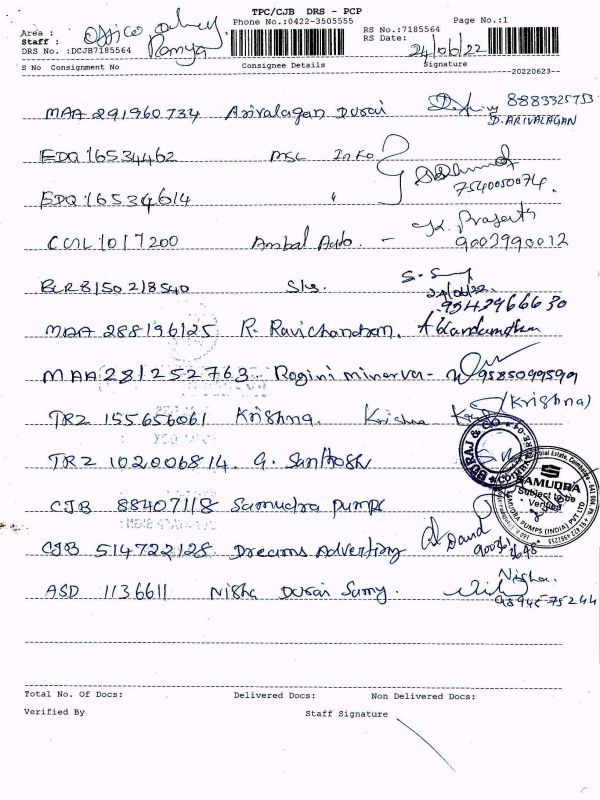 TPC/CJB DRS - PCP
Phone No.:0422-3505555
RS No.:7185564
Page No.:1
Area : Office
Staff : Ramya
RS Date: 24/06/22
DRS No. :DCJB7185564
S No Consignment No Consignee Details Signature
20220623
MAA 291960734 Arivalagan Durai 8883325753
D. ARIVALAGAN
EDQ 16534462 MSL Info
EDQ 16534614 " 7540050074.
CCNL 1017200 Ambal Auto. - K. Prasanth
9003990012
BLR 8150218540 Sks. 24/06/22
9542966630
MAA 288196125 R. Ravichandran.
MAA 281252763 Ragini minerva - 9585099599
TRZ 155656061 Krishna. Krishna (Krishna)
TRZ 102006814 G. Santhosh
CJB 88407118 Samudra Pumps
SAMUDRA
Subject to be
Verified
SAMUDRA PUMPS (INDIA) PVT LTD
CJB 514722128 Dreams Advertising
ASD 1136611 Nisha Durai Samy. Nisha.
9894575244
Total No. Of Docs: Delivered Docs: Non Delivered Docs:
Verified By Staff Signature